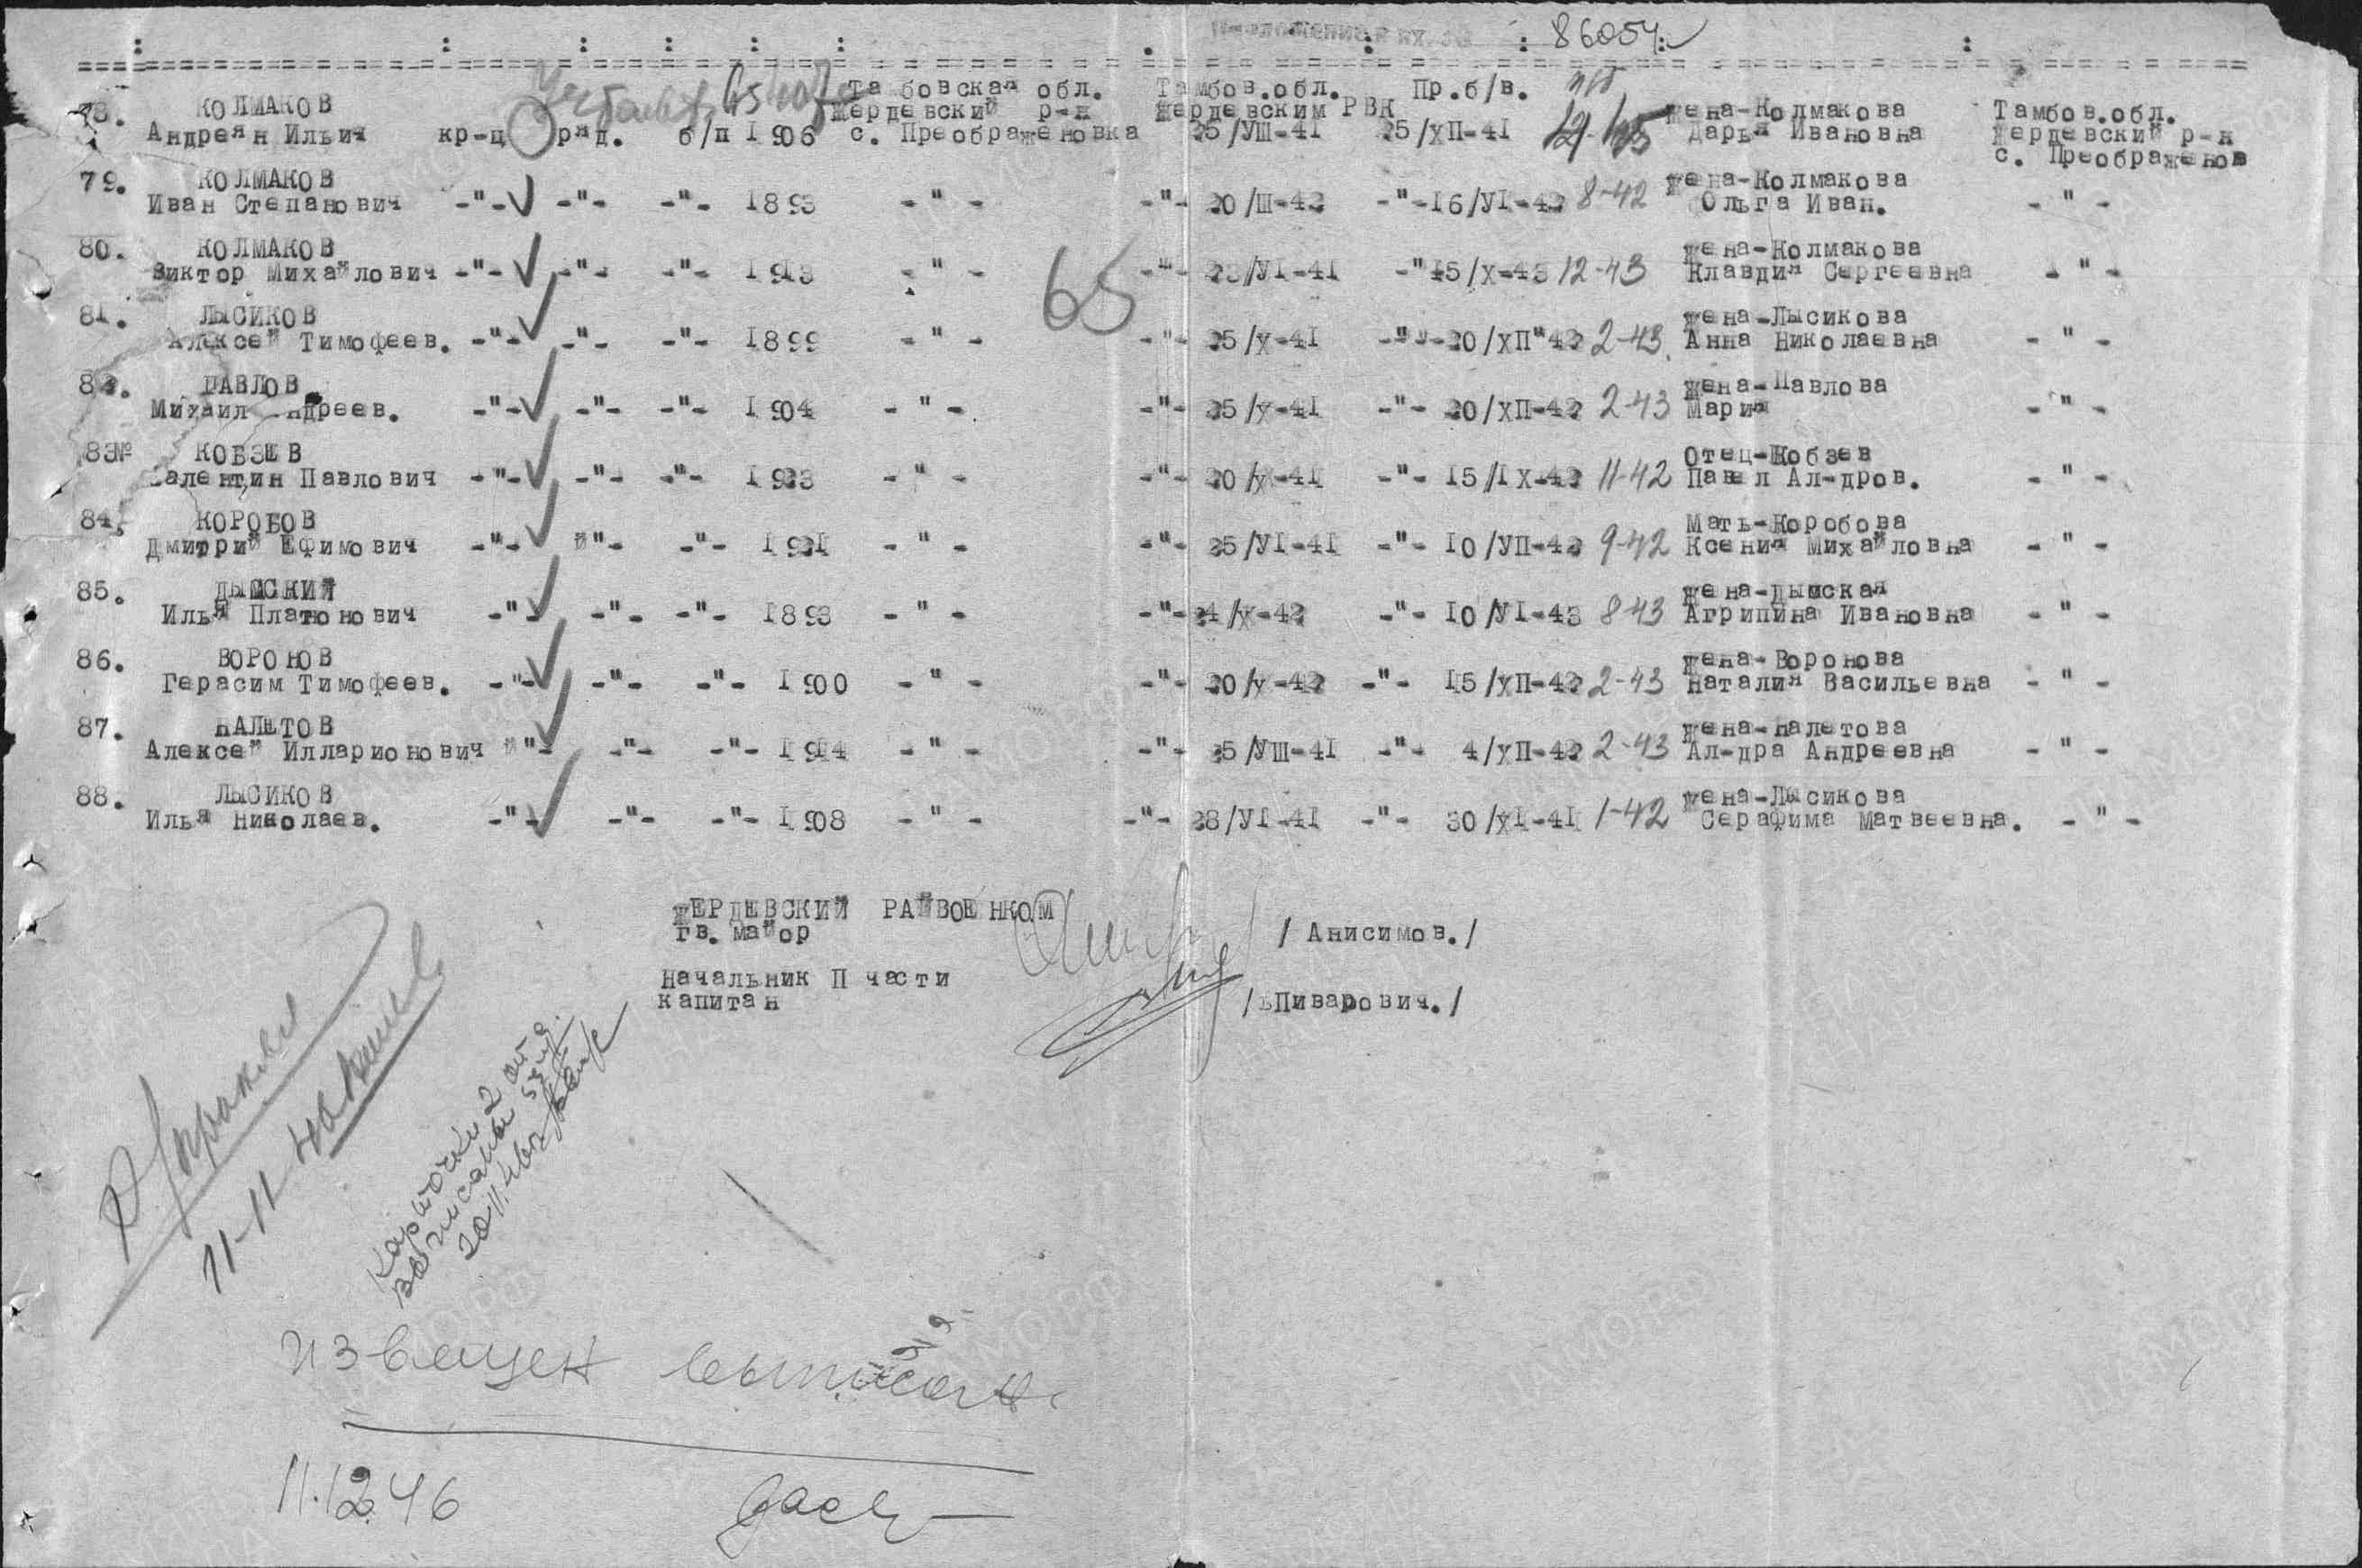 86054
КОЛМАКОВ Тамбовская обл. Тамбов.обл. Пр.б/в. жена-Колмакова Тамбов.обл.
78. Жердевский р-н Жердевским РВК Жердевский р-н
Андреян Ильич кр-ц ряд. б/п 1906 с. Преображеновка 25/УШ-41 25/ХП-41 Дарья Ивановна с. Преображенов
79. КОЛМАКОВ жена-Колмакова
Иван Степанович -"- -"- -"- 1893 - " - -"- 20/Ш-42 -"- 16/УІ-42 8-42 Ольга Иван. - " -
80. КОЛМАКОВ жена-Колмакова
Виктор Михайлович -"- -"- -"- 1913 - " - -"- 23/УІ-41 -"- 15/Х-43 12-43 Клавдия Сергеевна - " -
65
81. ЛЫСИКОВ жена-Лысикова
Алексей Тимофеев. -"- -"- -"- 1899 - " - -"- 25/Х-41 -"- 20/ХП-42 2-43 Анна Николаевна - " -
82. ПАВЛОВ жена-Павлова
Михаил Андреев. -"- -"- -"- 1904 - " - -"- 25/Х-41 -"- 20/ХП-42 2-43 Мария - " -
83№ КОБЗЕВ Отец-Кобзев
Валентин Павлович -"- -"- -"- 1923 - " - -"- 20/Х-41 -"- 15/ІХ-42 11-42 Павел Ал-дров. - " -
84. КОРОБОВ Мать-Коробова
Дмитрий Ефимович -"- й"- -"- 1921 - " - -"- 25/УІ-41 -"- 10/УП-42 9-42 Ксения Михайловна - " -
85. ДЫМСКИЙ жена-Дымская
Илья Платонович -"- -"- -"- 1893 - " - -"- 24/Х-42 -"- 10/УІ-43 8-43 Агрипина Ивановна - " -
86. ВОРОНОВ жена-Воронова
Герасим Тимофеев. -"- -"- -"- 1900 - " - -"- 20/Х-42 -"- 15/ХП-42 2-43 Наталия Васильевна - " -
87. НАЛЕТОВ жена-Налетова
Алексей Илларионович й"- -"- -"- 1914 - " - -"- 25/УШ-41 -"- 4/ХП-42 2-43 Ал-дра Андреевна - " -
88. ЛЫСИКОВ жена-Лысикова
Илья Николаев. -"- -"- -"- 1908 - " - -"- 28/УІ-41 -"- 30/ХІ-41 1-42 Серафима Матвеевна. - " -
ЖЕРДЕВСКИЙ РАЙВОЕНКОМ
гв. майор / Анисимов./
Начальник П части
капитан /Пиварович./
11-11
Карточки 2
вы писаны
извещен выписан
11.12.46